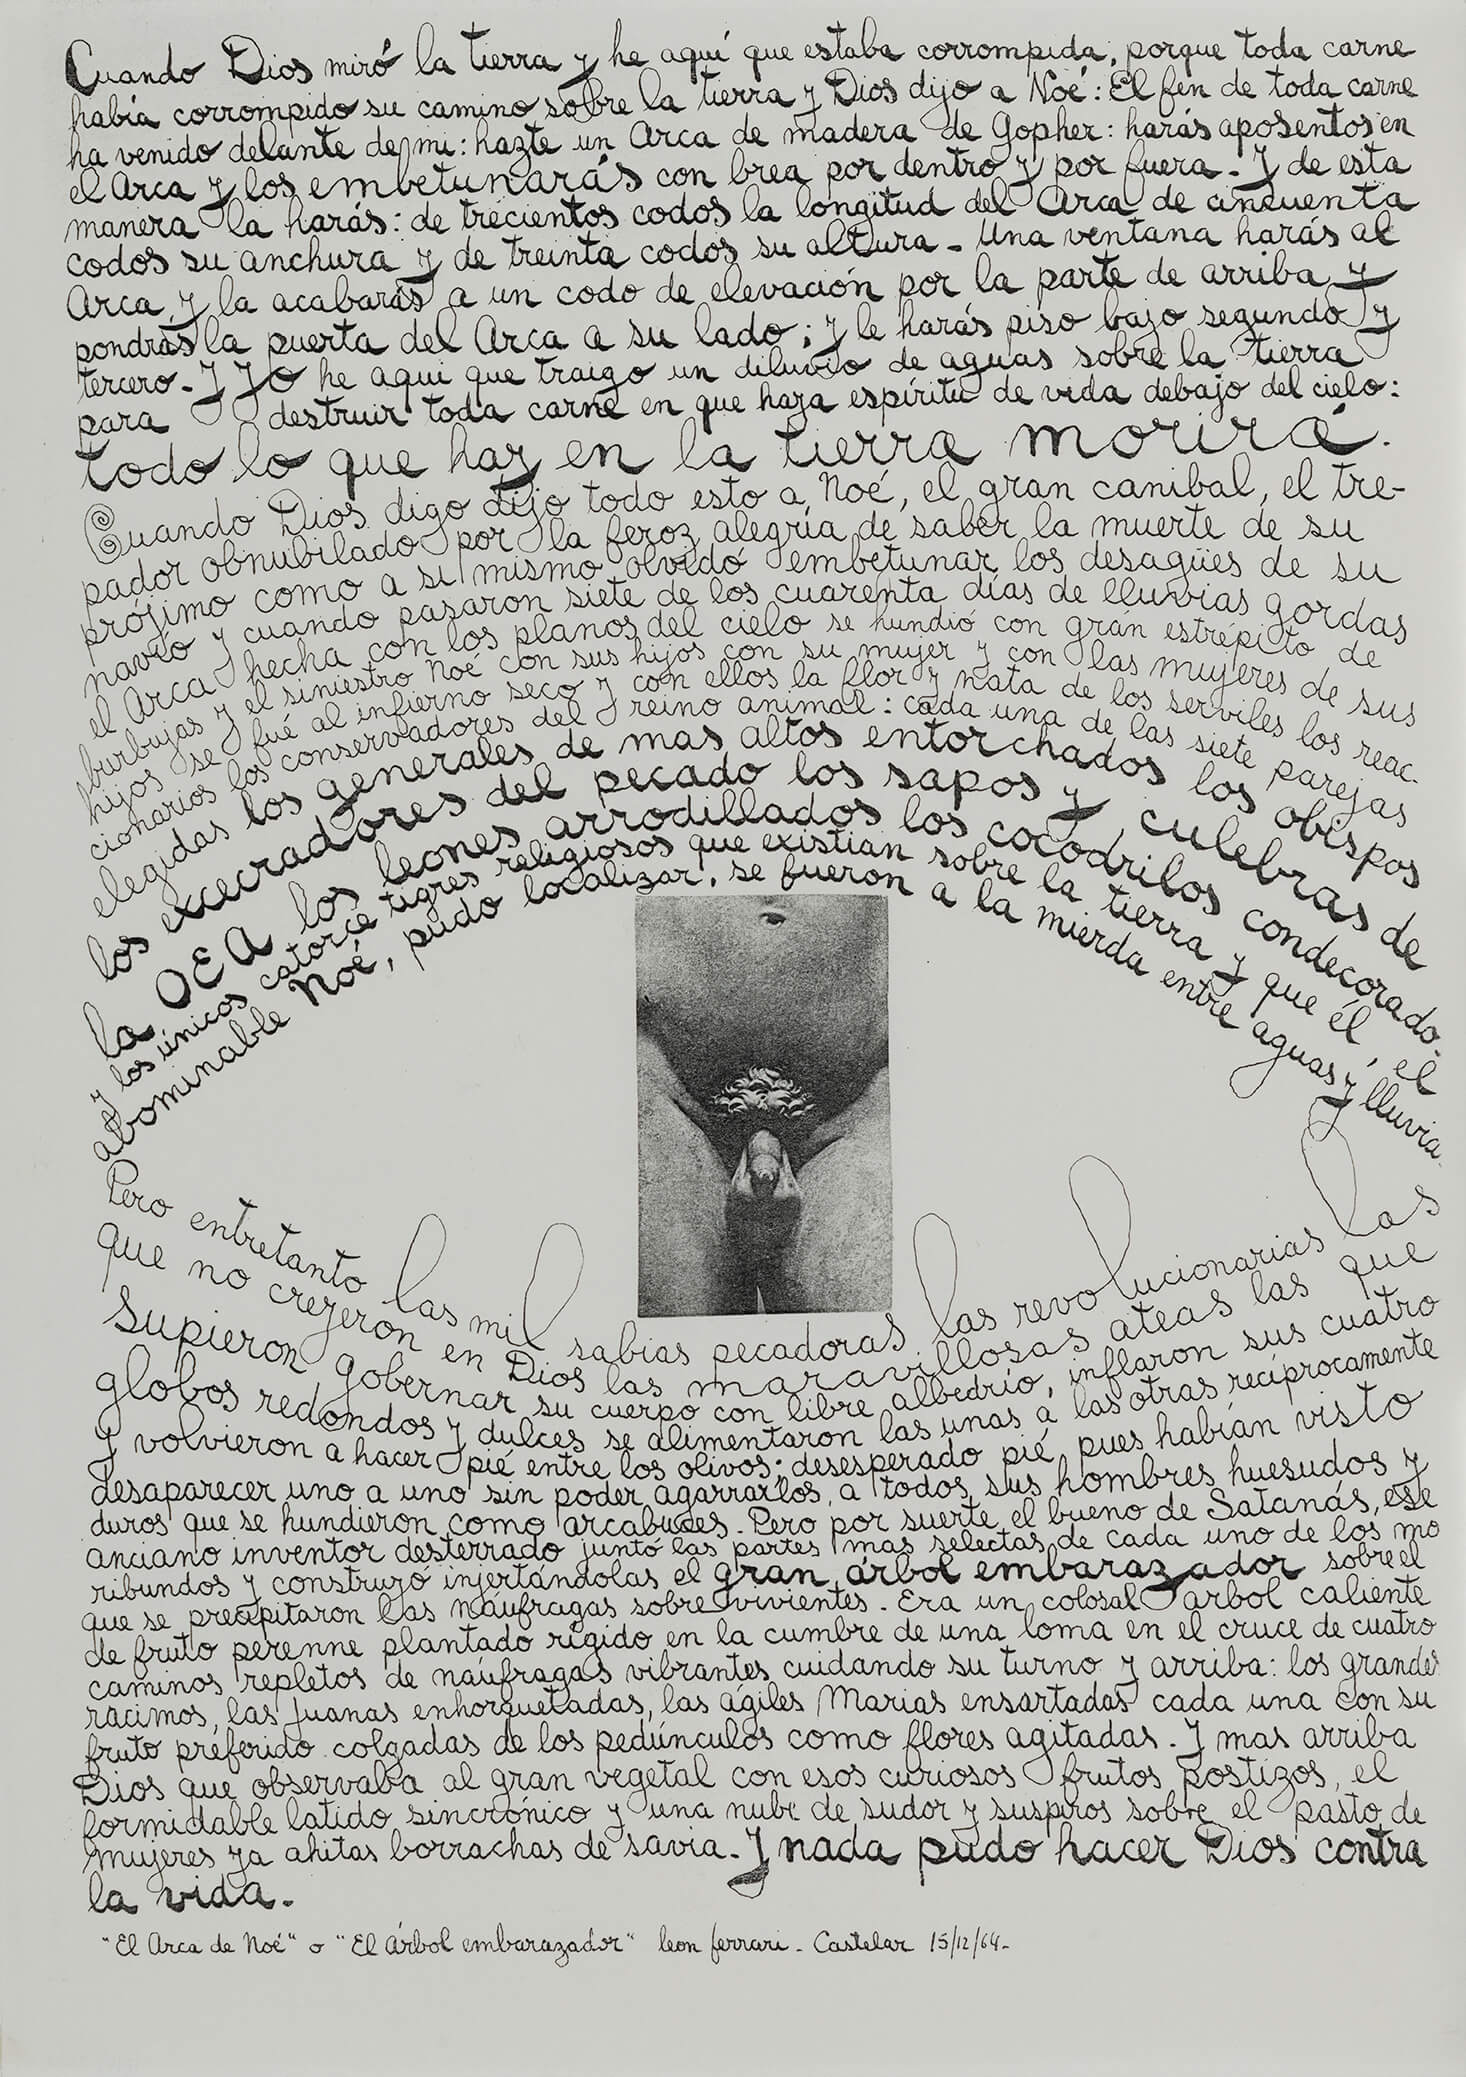 Cuando Dios miró la tierra y he aquí que estaba corrompida, porque toda carne
había corrompido su camino sobre la tierra y Dios dijo a Noé: El fin de toda carne
ha venido delante de mi: hazte un Arca de madera de Gopher: harás aposentos en
el Arca y los embetunarás con brea por dentro y por fuera - Y de esta
manera la harás: de trecientos codos la longitud del Arca de cincuenta
codos su anchura y de treinta codos su altura - Una ventana harás al
Arca, y la acabarás a un codo de elevación por la parte de arriba y
pondrás la puerta del Arca a su lado; y le harás piso bajo segundo y
tercero - Y Yo he aqui que traigo un diluvio de aguas sobre la tierra
para destruir toda carne en que haya espíritu de vida debajo del cielo:
todo lo que hay en la tierra morirá.
Cuando Dios digo dijo todo esto a Noé, el gran canibal, el tre-
pador obnubilado por la feroz alegría de saber la muerte de su
prójimo como a si mismo olvidó embetunar los desagües de su
navío y cuando pasaron siete de los cuarenta días de lluvias gordas
el Arca hecha con los planos del cielo se hundió con gran estrépito de
burbujas y el siniestro Noé con sus hijos con su mujer y con las mujeres de sus
hijos se fué al infierno seco y con ellos la flor y nata de los serviles los reac-
cionarios los conservadores del reino animal: cada una de las siete parejas
elegidas los generales de mas altos entorchados los obispos
los execradores del pecado los sapos y culebras de
la OEA los leones arrodillados los cocodrilos condecorados
y los únicos catorce tigres religiosos que existían sobre la tierra y que él, el
abominable Noé, pudo localizar, se fueron a la mierda entre aguas y lluvia.
Pero entretanto las mil sabias pecadoras las revolucionarias las
que no creyeron en Dios las maravillosas ateas las que
supieron gobernar su cuerpo con libre albedrío, inflaron sus cuatro
globos redondos y dulces se alimentaron las unas a las otras recíprocamente
y volvieron a hacer pié entre los olivos: desesperado pié pues habían visto
desaparecer uno a uno sin poder agarrarlos, a todos sus hombres huesudos y
duros que se hundieron como arcabuces. Pero por suerte el bueno de Satanás, ese
anciano inventor desterrado juntó las partes mas selectas de cada uno de los mo
ribundos y construyó injertándolas el gran árbol embarazador sobre el
que se precipitaron las náufragas sobrevivientes. Era un colosal arbol caliente
de fruto perenne plantado rígido en la cumbre de una loma en el cruce de cuatro
caminos repletos de naúfragas vibrantes cuidando su turno y arriba: los grandes
racimos, las Juanas enhorquetadas, las ágiles Marias ensartadas cada una con su
fruto preferido colgadas de los pedúnculos como flores agitadas. Y mas arriba
Dios que observaba al gran vegetal con esos curiosos frutos postizos, el
formidable latido sincrónico y una nube de sudor y suspiros sobre el pasto de
mujeres ya ahitas borrachas de savia. Y nada pudo hacer Dios contra
la vida.
"El Arca de Noé" o "El Árbol embarazador" leon ferrari - Castelar 15/12/64 -